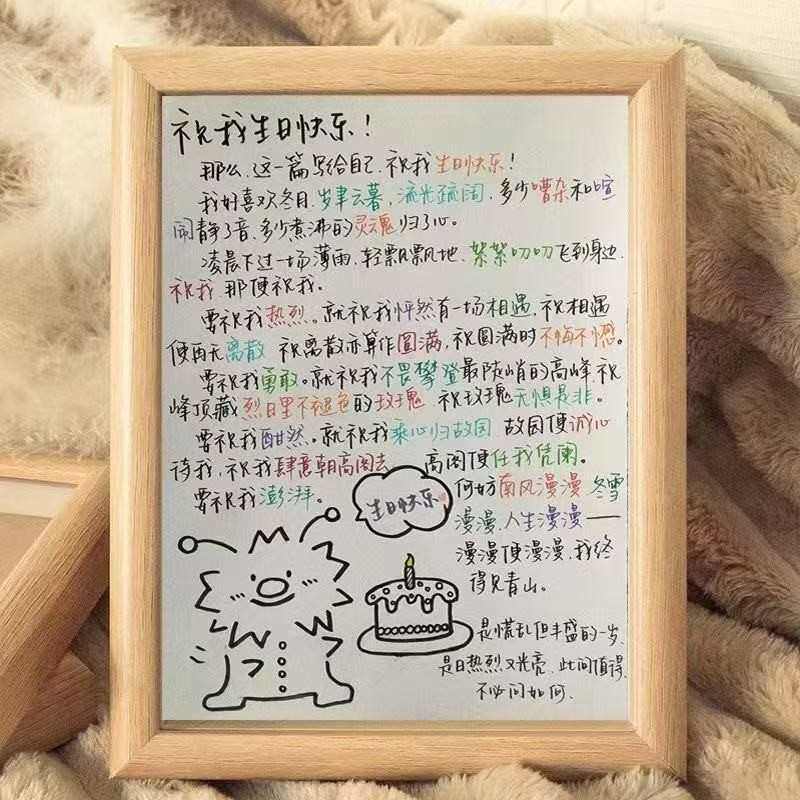 祝我生日快乐！
那么、这一篇写给自己、祝我生日快乐！
我好喜欢冬月、岁聿云暮、流光疏阔、多少嘈杂和喧
闹静了音、多少煮沸的灵魂归了心。
凌晨下过一场薄雨、轻飘飘地、絮絮叨叨飞到身边、
祝我、那便祝我。
要祝我热烈。就祝我怦然有一场相遇、祝相遇
便再无离散 祝离散亦算作圆满、祝圆满时不悔不憾。
要祝我勇敢。就祝我不畏攀登最陡峭的高峰、祝
峰顶藏烈日里不褪色的玫瑰 祝玫瑰无惧是非。
要祝我酣然。就祝我乘心归故园 故园便诚心
待我、祝我肆意朝高阁去 高阁便任我凭阑。
要祝我澎湃。
何妨南风漫漫 冬雪
漫漫、人生漫漫——
漫漫便漫漫、我终
得见青山。
生日快乐
是慌乱但丰盛的一岁、
是日热烈又光亮、此间值得、
不必问如何、